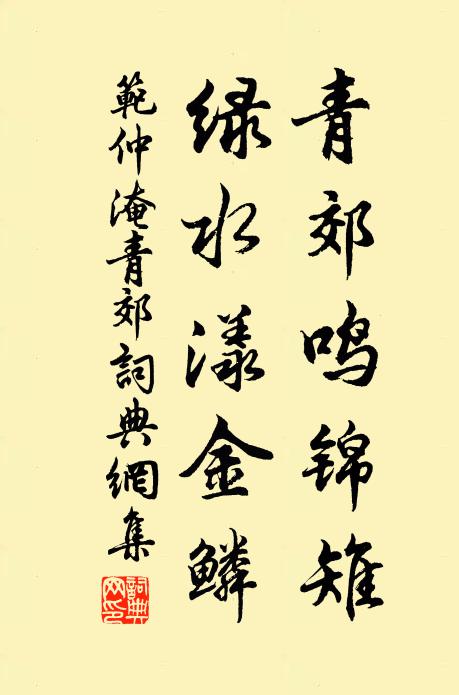 青郊鸣锦雉
绿水漾金鳞
範仲淹青郊詞典網集
詞典网印